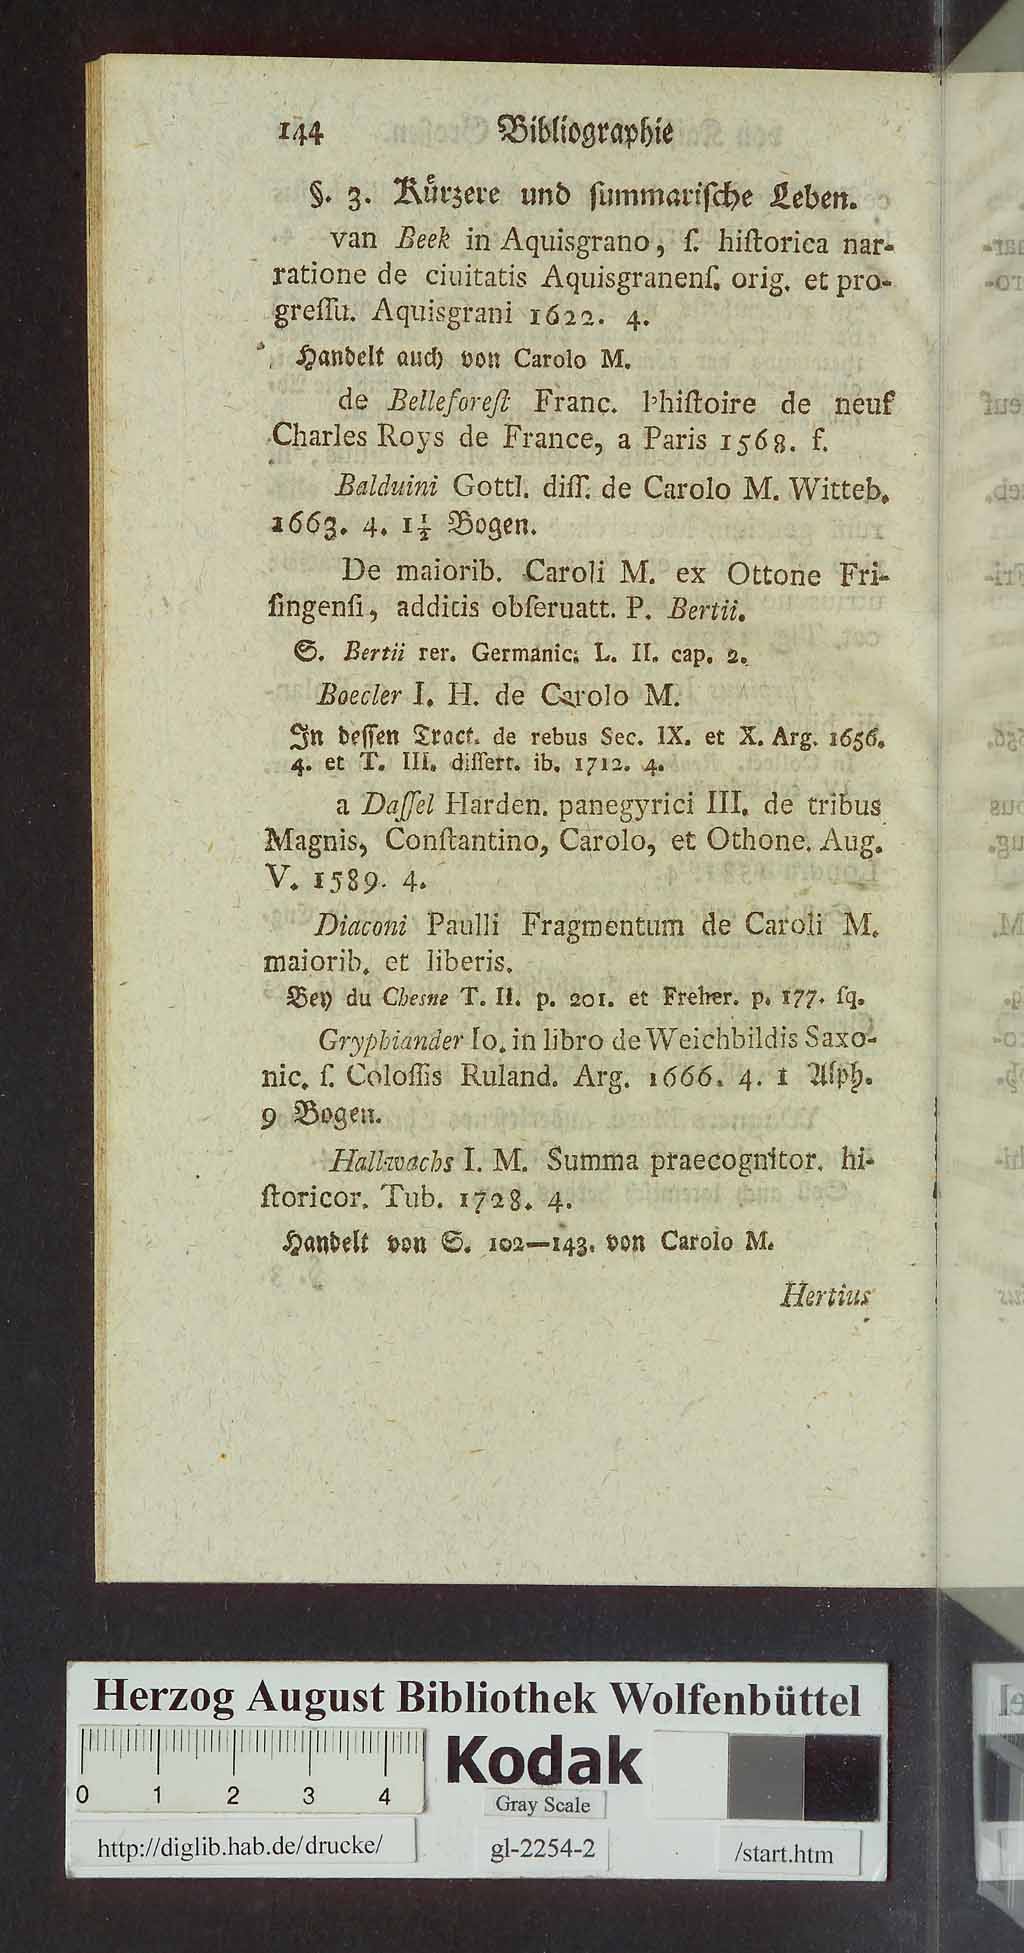 144 Bibliographie
§. 3. Kürzere und ſummariſche Leben.
van Beek in Aquisgrano, ſ. hiſtorica nar-
ratione de ciuitatis Aquisgranenſ. orig. et pro-
greſſu. Aquisgrani 1622. 4.
Handelt auch von Carolo M.
de Belleforeſt Franc. l'hiſtoire de neuf
Charles Roys de France, a Paris 1568. f.
Balduini Gottl. diſſ. de Carolo M. Witteb.
1663. 4. 1½ Bogen.
De maiorib. Caroli M. ex Ottone Fri-
ſingenſi, additis obſeruatt. P. Bertii.
S. Bertii rer. Germanic. L. II. cap. 2.
Boecler I. H. de Carolo M.
In deſſen Tract. de rebus Sec. IX. et X. Arg. 1656.
4. et T. III. diſſert. ib. 1712. 4.
a Daſſel Harden. panegyrici III. de tribus
Magnis, Conſtantino, Carolo, et Othone. Aug.
V. 1589. 4.
Diaconi Paulli Fragmentum de Caroli M.
maiorib. et liberis.
Bey du Chesne T. II. p. 201. et Freher. p. 177. ſq.
Gryphiander Io. in libro de Weichbildis Saxo-
nic. ſ. Coloſſis Ruland. Arg. 1666. 4. 1 Alph.
9 Bogen.
Hallwachs I. M. Summa praecognitor. hi-
ſtoricor. Tub. 1728. 4.
Handelt von S. 102—143. von Carolo M.
Hertius
Herzog August Bibliothek Wolfenbüttel
0 1 2 3 4
Kodak
Gray Scale
http://diglib.hab.de/drucke/
gl-2254-2
/start.htm